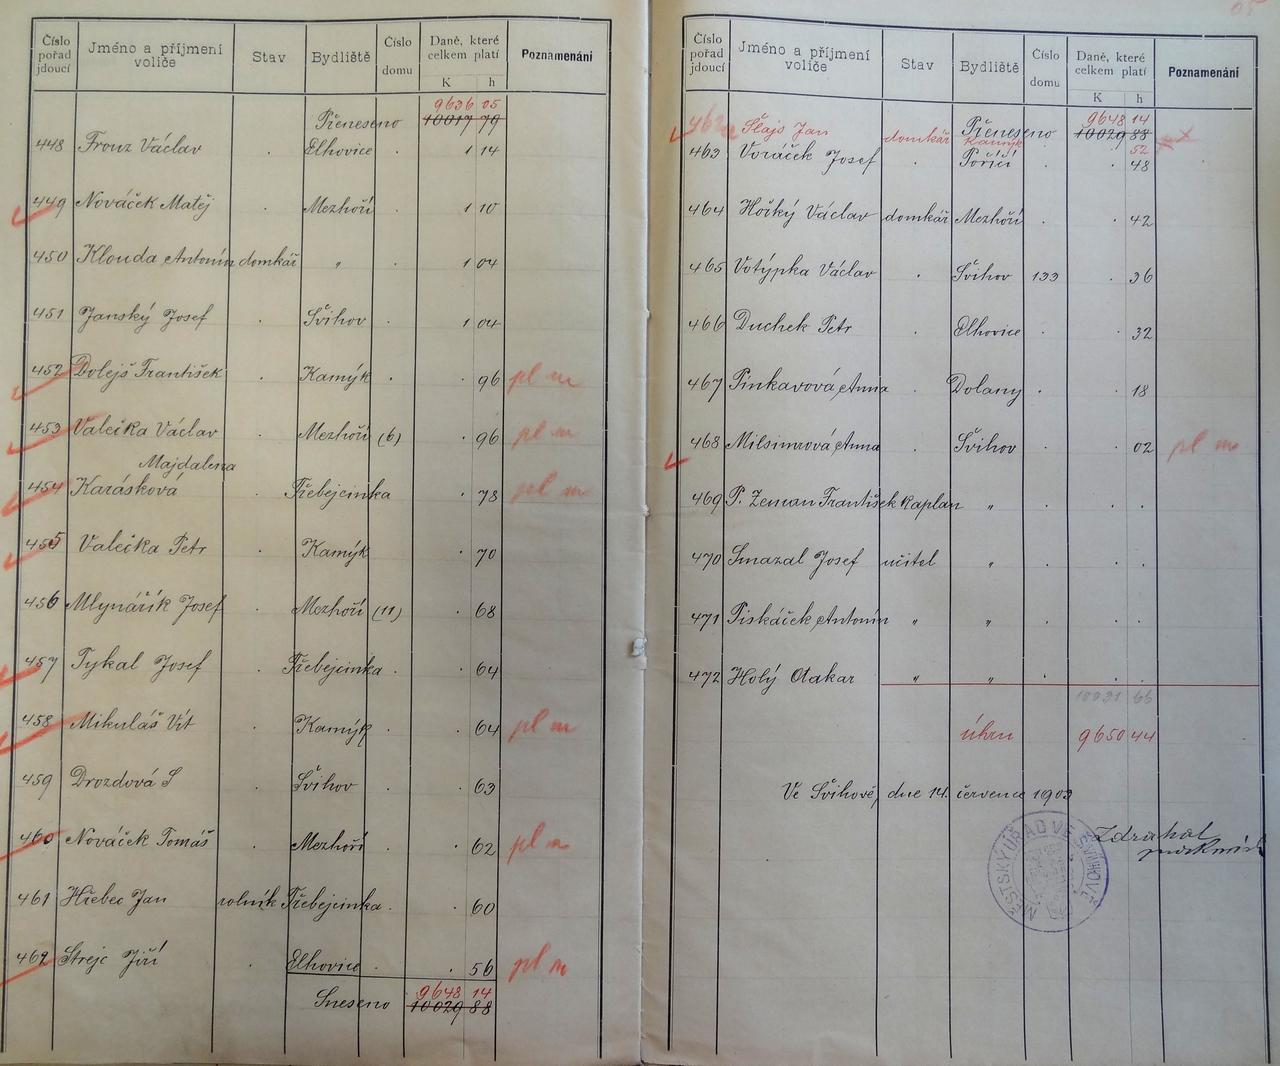 Číslo pořad jdoucí Jméno a příjmení voliče Stav Bydliště Číslo domu Daně, které celkem platí K h Poznamenání
9636 05
Přeneseno 10017 79
448 Fronz Václav . Elhovice . 1 14
449 Nováček Matěj . Mezhoří . 1 10
450 Klouda Antonín domkář " . 1 04
451 Janský Josef . Švihov . 1 04
452 Dolejš František . Kamýk . . 96 pl m
453 Valečka Václav . Mezhoří (6) . 96 pl m
Majdalena
454 Karásková . Třebejcinka . 78 pl m
455 Valečka Petr . Kamýk . 70
456 Mlynářík Josef . Mezhoří (11) . 68
457 Tykal Josef . Třebejcinka . . 64
458 Mikuláš Vít . Kamýk . . 64 pl m
459 Drozdová S . Švihov . . 63
460 Nováček Tomáš . Mezhoří . . 62 pl m
461 Hřebec Jan rolník Třebejcinka . . 60
462 Strejc Jiří . Elhovice . . 56 pl m
9648 14
Sneseno 10029 88
05
Číslo pořad jdoucí Jméno a příjmení voliče Stav Bydliště Číslo domu Daně, které celkem platí K h Poznamenání
9648 14
Přeneseno 10029 88
462a Šlajs Jan domkář Kamýk . 52
463 Voráček Josef . Poříčí . . 48
464 Hořký Václav domkář Mezhoří . . 42
465 Votýpka Václav . Švihov 133 . 36
466 Duchek Petr . Elhovice . . 32
467 Pinkavová Anna . Dolany . . 18
468 Milsimrová Anna . Švihov . . 02 pl m
469 P. Zeman František kaplan " . . .
470 Smazal Josef učitel " . . .
471 Piskáček Antonín " " . . .
472 Holý Otakar " " . . .
10031 66
úhrn 9650 44
Ve Švihově, dne 14. července 1903
Zdrahal
MĚSTSKÝ ÚŘAD VE ŠVIHOVĚ